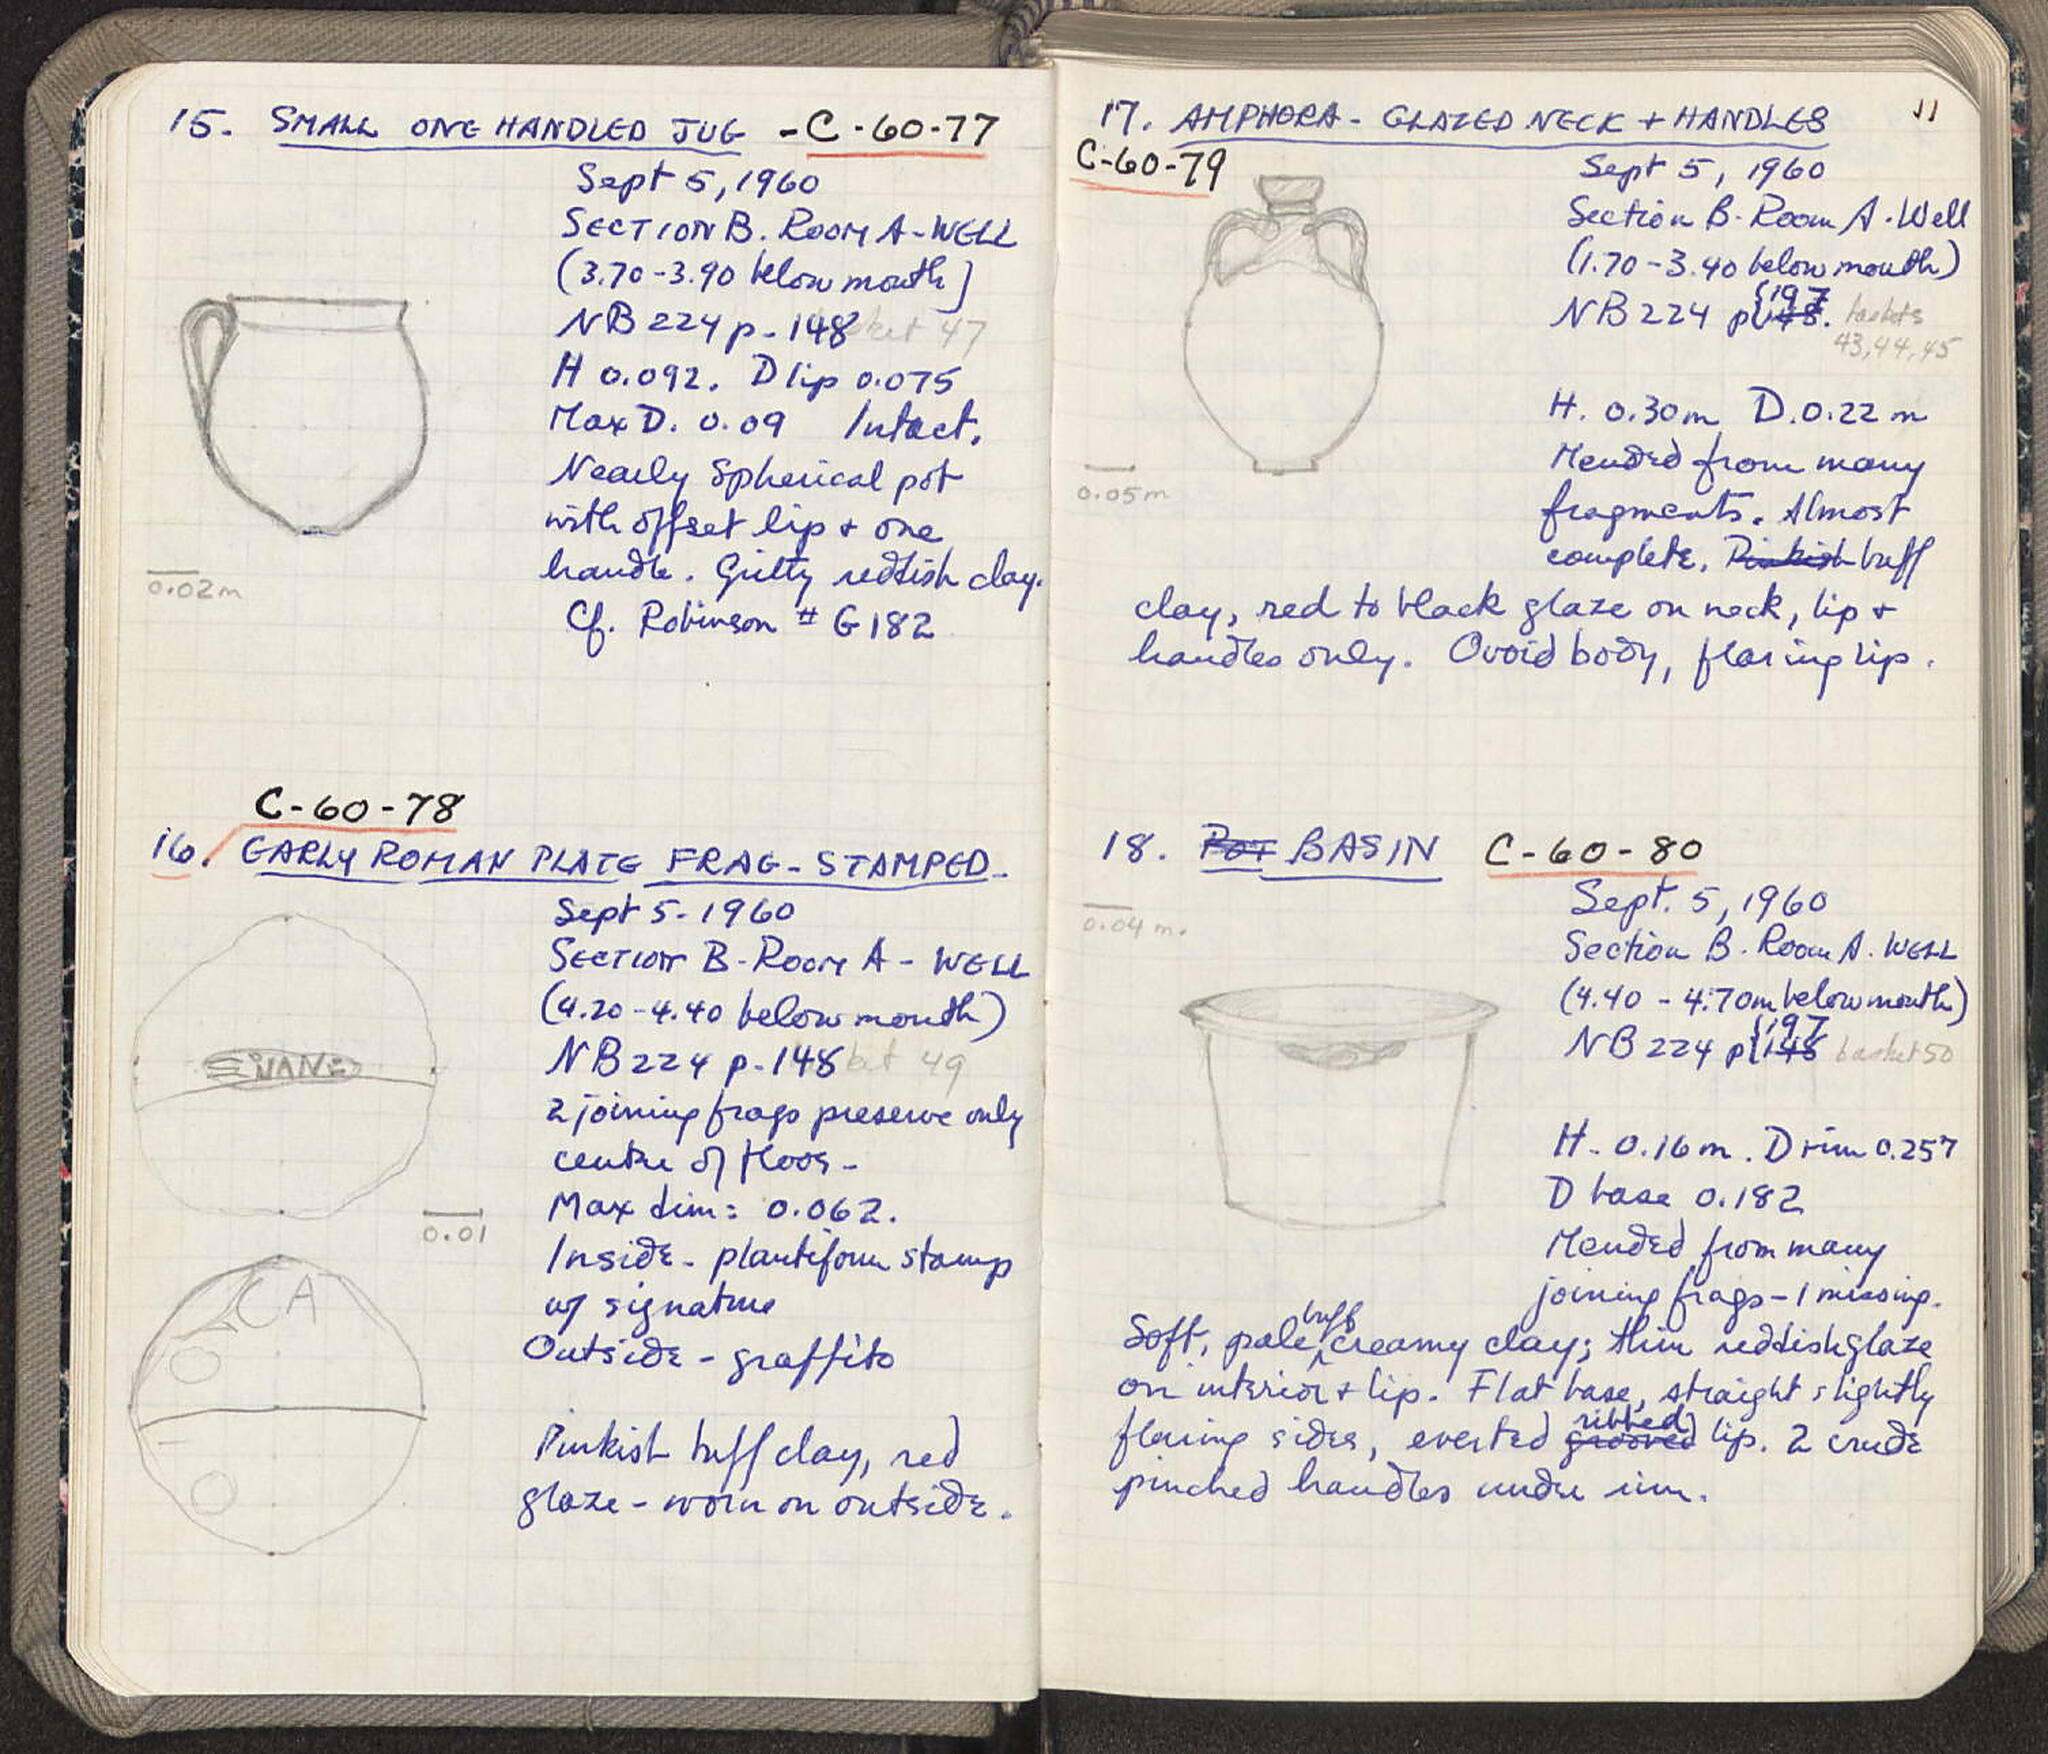 15. SMALL ONE HANDLED JUG - C-60-77
Sept 5, 1960
SECTION B. ROOM A - WELL
(3.70 - 3.90 below mouth)
NB 224 p. 148 basket 47
H 0.092. D lip 0.075
Max D. 0.09 Intact.
Nearly spherical pot
with offset lip + one
handle. Gritty reddish clay.
Cf. Robinson # G 182
0.02m
C-60-78
16. EARLY ROMAN PLATE FRAG - STAMPED -
Sept 5 - 1960
SECTION B - ROOM A - WELL
(4.20 - 4.40 below mouth)
NB 224 p. 148 basket 49
2 joining frags preserve only
centre of floor -
Max dim: 0.062.
Inside - plantiform stamp
w/ signature
Outside - graffito
Pinkish buff clay, red
glaze - worn on outside.
0.01
CA
11
17. AMPHORA - GLAZED NECK + HANDLES
C-60-79
Sept 5, 1960
Section B. Room A. Well
(1.70 - 3.40 below mouth)
NB 224 p { 197 148. baskets
43, 44, 45
H. 0.30m D. 0.22 m
Mended from many
fragments. Almost
complete. Pinkish buff
clay, red to black glaze on neck, lip +
handles only. Ovoid body, flaring lip.
0.05m
18. POT BASIN C-60-80
Sept. 5, 1960
Section B. Room A. WELL
(4.40 - 4.70m below mouth)
NB 224 p { 197 148 basket 50
0.04 m.
H. 0.16 m. D rim 0.257
D base 0.182
Mended from many
joining frags - 1 missing.
Soft, pale buff creamy clay; thin reddish glaze
on interior + lip. Flat base, straight slightly
flaring sides, everted grooved ribbed lip. 2 crude
pinched handles under rim.